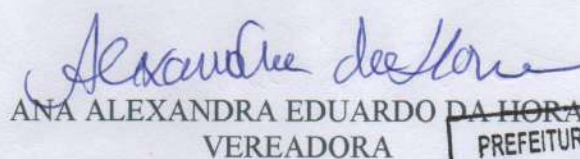 Alexandra da Hora
ANA ALEXANDRA EDUARDO DA HORA
VEREADORA
PREFEITUR